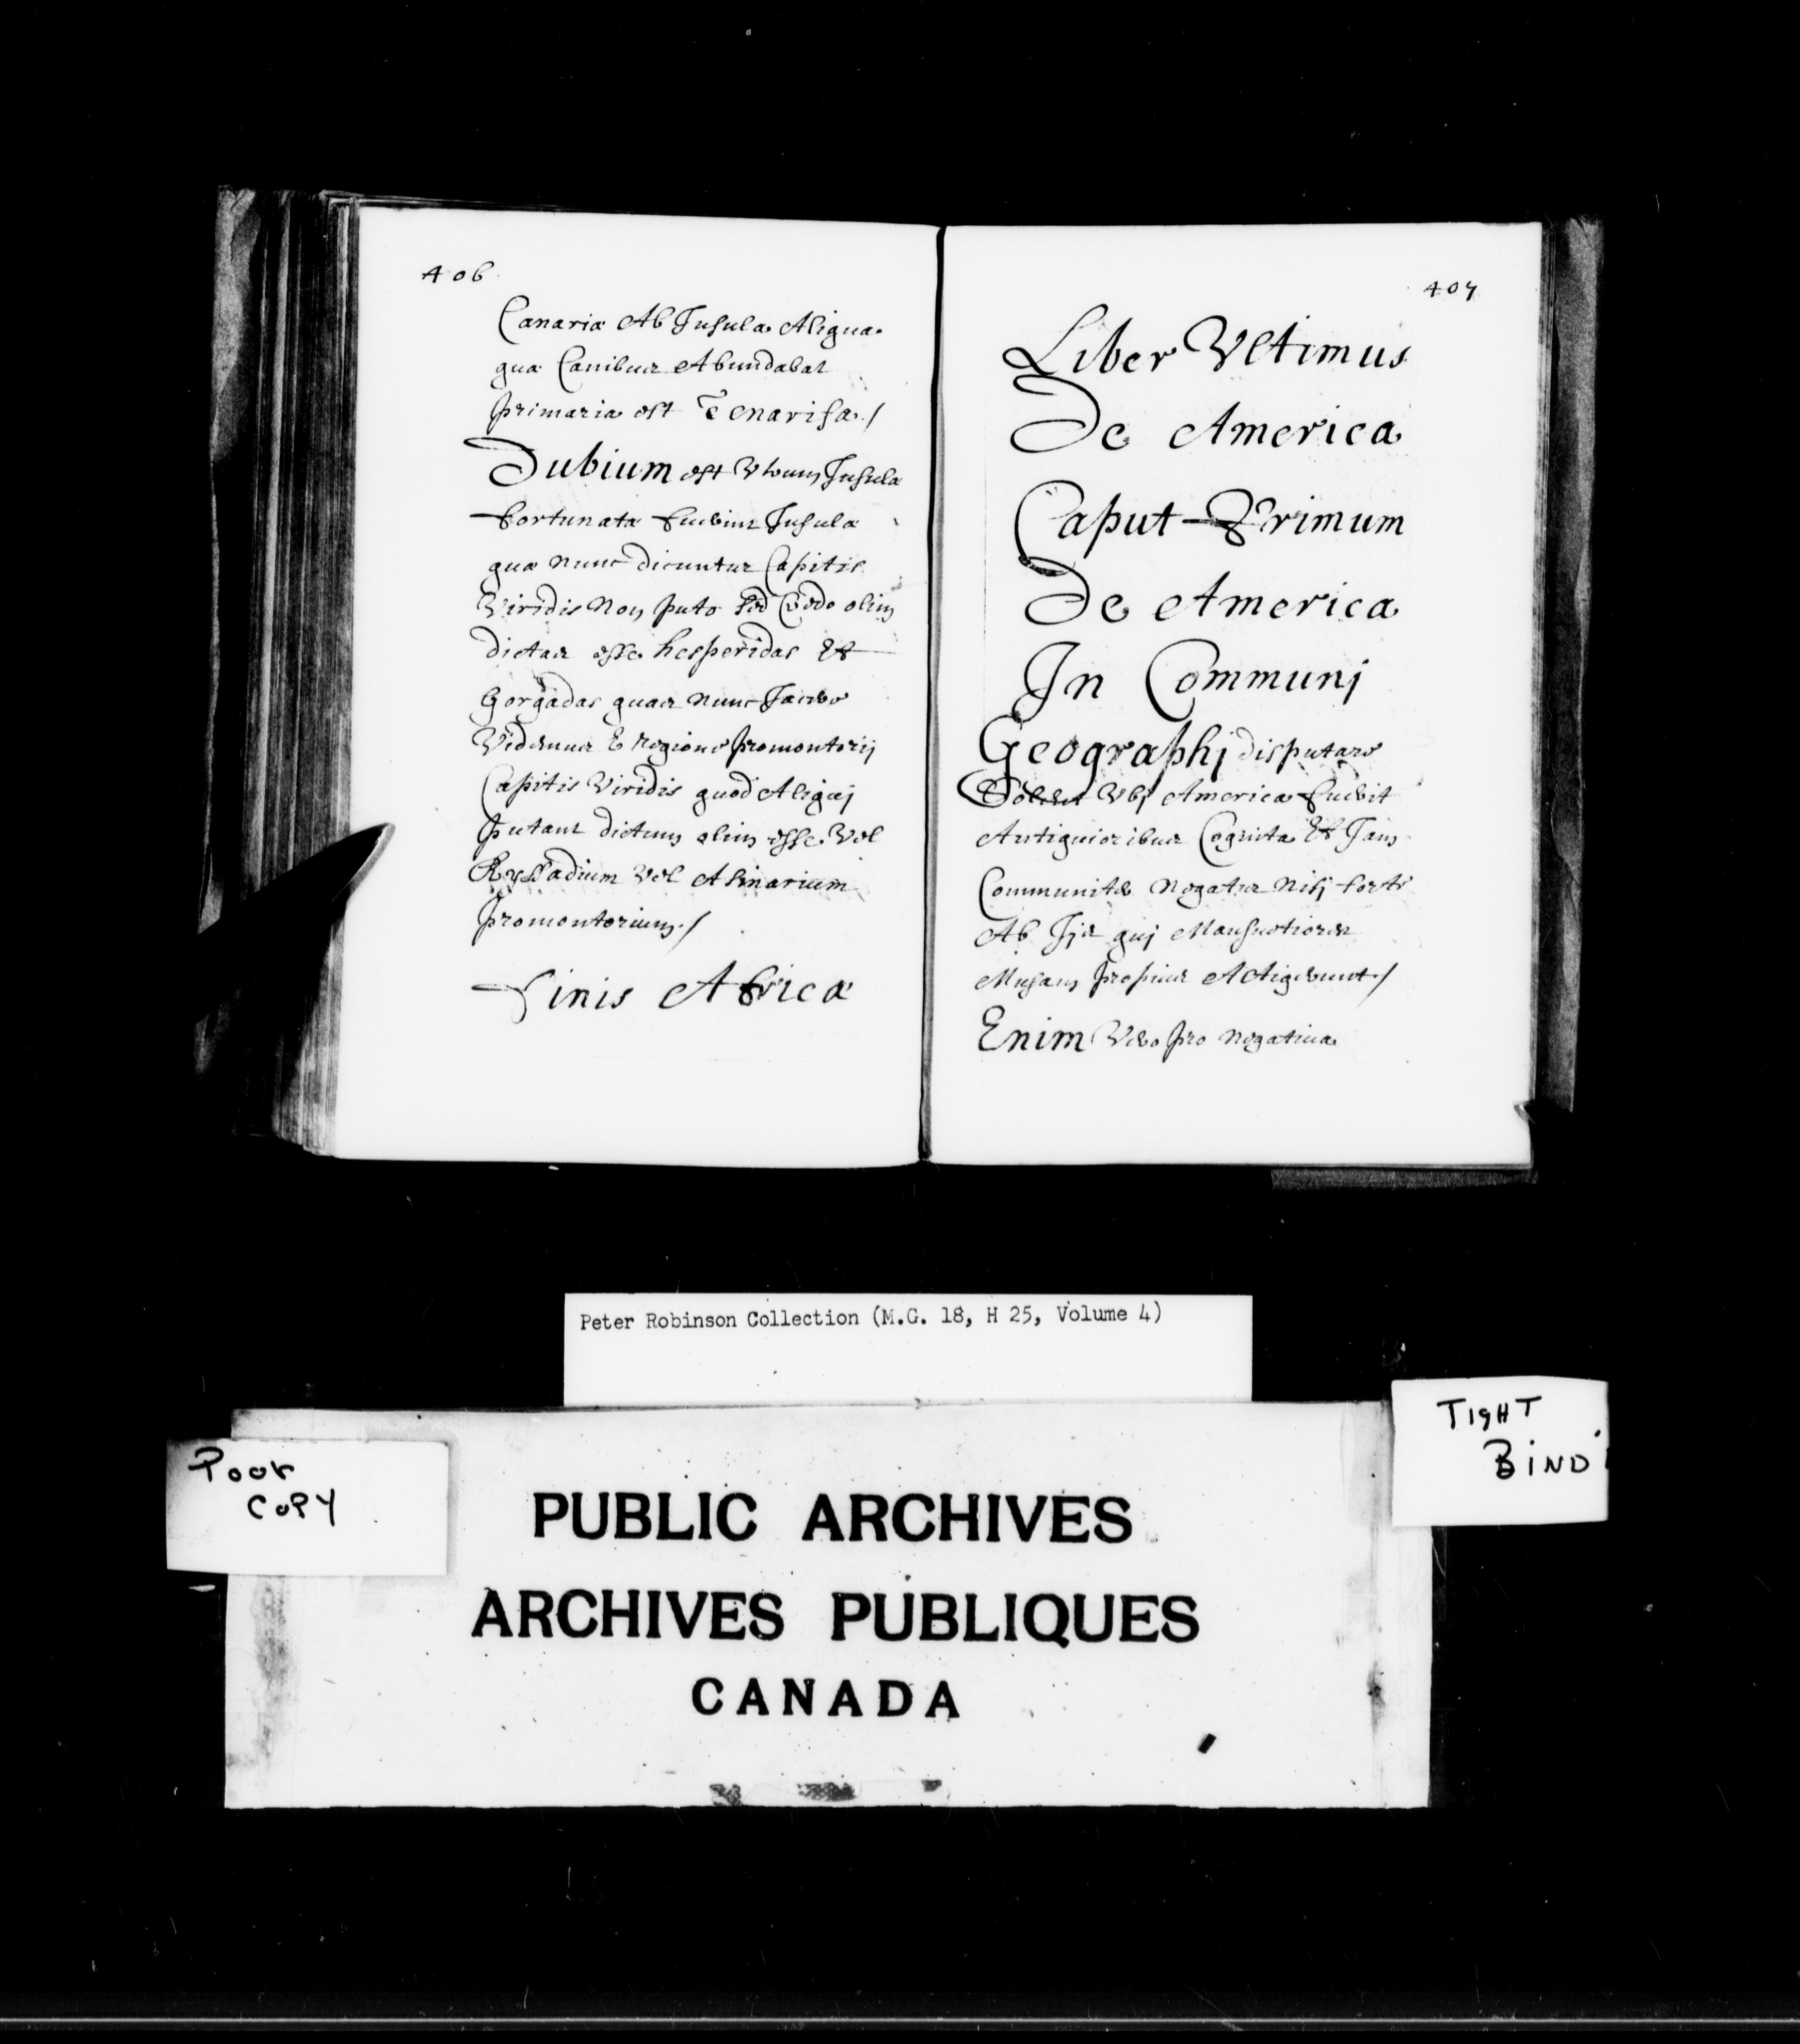 406
Canariæ Ab Insula Aliqua
quæ Canibus Abundabat
primaria est Tenarifa /
Dubium est Utrum Insulæ
Fortunatæ fuerint Insulæ
quæ nunc dicuntur Capitis
Viridis Non puto sed Credo olim
dictas esse hesperidas Et
Gorgadas quas nunc
Videmus E regione promontorij
Capitis Viridis quod Aliquj
putant dictum olim esse Vel
Ryssadium Vel Asinarium
promontorium /
Finis Africæ
407
Liber Ultimus
De America
Caput Primum
De America
In Communj
Geographj disputare
Solent Ubj America fuerit
Antiquioribus Cognita Et Jam
Communiter Negatur Nisj forte
Ab Ijs quj Mansuetiores
Musam propius Attigerunt /
Enim Vero pro Negatiua
Peter Robinson Collection (M.G. 18, H 25, Volume 4)
Poor
Copy
Tight
Bind
PUBLIC ARCHIVES
ARCHIVES PUBLIQUES
CANADA